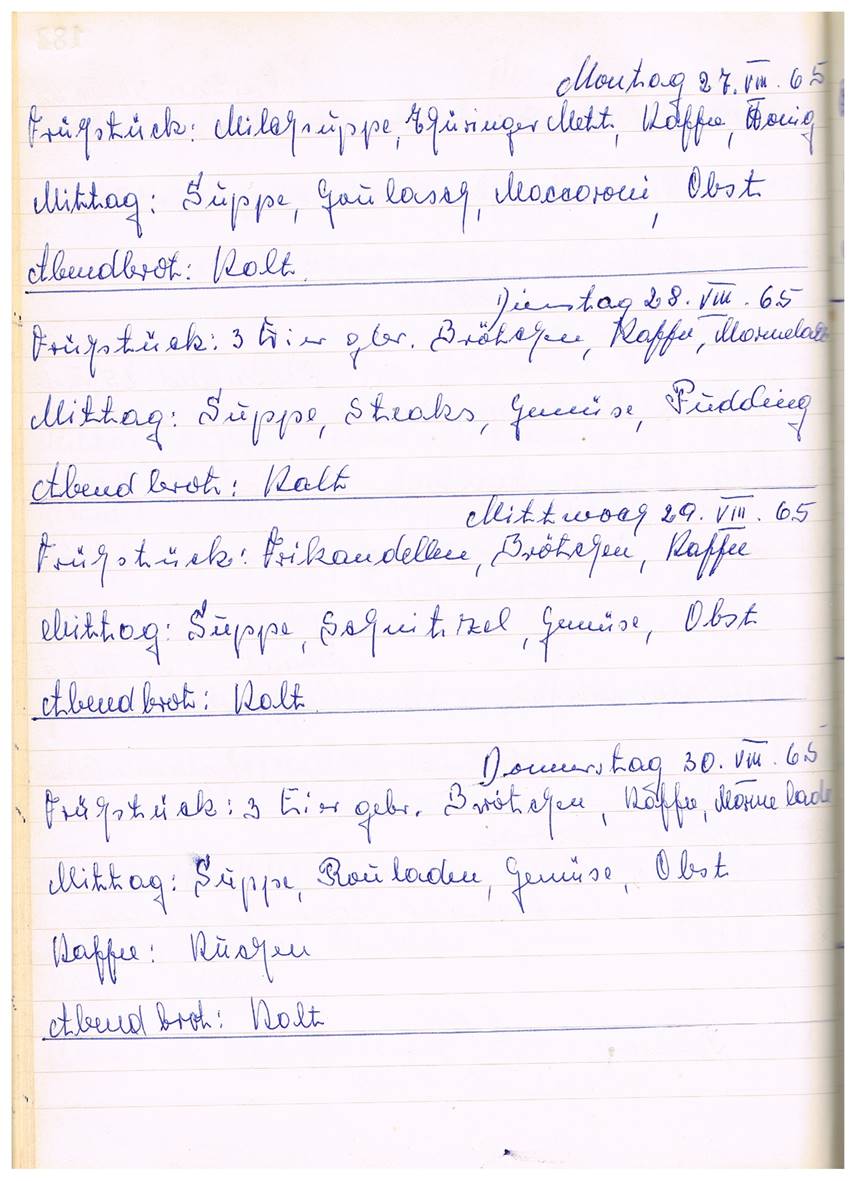 Montag 27. VIII. 65
Frühstück: Milchsuppe, Thüringer Mett, Kaffee, Honig
Mittag: Suppe, Goulasch, Maccaroni, Obst
Abendbrot: Kalt.
Dienstag 28. VIII. 65
Frühstück: 3 Eier gbr. Brötchen, Kaffee, Marmelade
Mittag: Suppe, Steaks, Gemüse, Pudding
Abendbrot: Kalt
Mittwoch 29. VIII. 65
Frühstück: Frikandellen, Brötchen, Kaffee
Mittag: Suppe, Schnitzel, Gemüse, Obst
Abendbrot: Kalt.
Donnerstag 30. VIII. 65
Frühstück: 3 Eier gebr. Brötchen, Kaffee, Marmelade
Mittag: Suppe, Rouladen, Gemüse, Obst
Kaffee: Kuchen
Abendbrot: Kalt